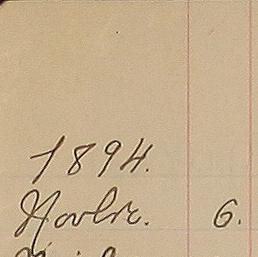 1894.
Novbr. 6.